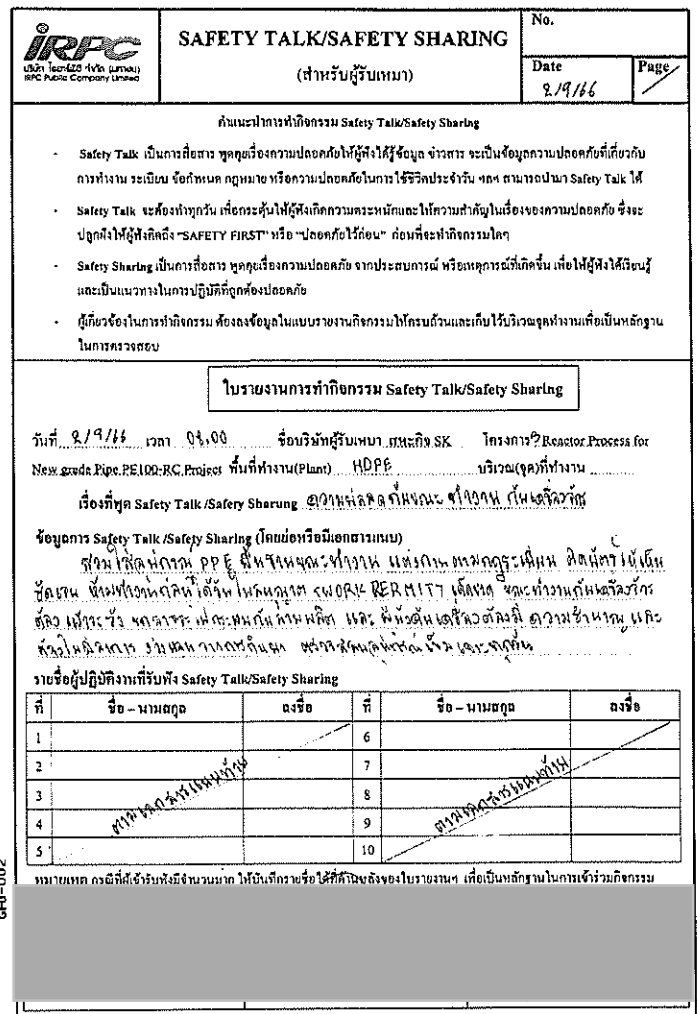 IRPC
บริษัท ไออาร์พีซี จำกัด (มหาชน)
IRPC Public Company Limited
SAFETY TALK/SAFETY SHARING
(สำหรับผู้รับเหมา)
No.
Date
2/9/66
Page
คำแนะนำการทำกิจกรรม Safety Talk/Safety Sharing
- Safety Talk เป็นการสื่อสาร พูดคุยเรื่องความปลอดภัยให้ผู้ฟังได้รู้ข้อมูล ข่าวสาร จะเป็นข้อมูลความปลอดภัยที่เกี่ยวกับ
การทำงาน ระเบียบ ข้อกำหนด กฎหมาย หรือความปลอดภัยในการใช้ชีวิตประจำวัน ฯลฯ สามารถนำมา Safety Talk ได้
- Safety Talk จะต้องทำทุกวัน เพื่อกระตุ้นให้ผู้ฟังเกิดความตระหนักและให้ความสำคัญในเรื่องของความปลอดภัย ซึ่งจะ
ปลูกฝังให้ผู้ฟังคิดถึง "SAFETY FIRST" หรือ "ปลอดภัยไว้ก่อน" ก่อนที่จะทำกิจกรรมใดๆ
- Safety Sharing เป็นการสื่อสาร พูดคุยเรื่องความปลอดภัย จากประสบการณ์ หรือเหตุการณ์ที่เกิดขึ้น เพื่อให้ผู้ฟังได้เรียนรู้
และเป็นแนวทางในการปฏิบัติที่ถูกต้องปลอดภัย
- ผู้เกี่ยวข้องในการทำกิจกรรม ต้องลงข้อมูลในแบบรายงานกิจกรรมให้ครบถ้วนและเก็บไว้บริเวณจุดทำงานเพื่อเป็นหลักฐาน
ในการตรวจสอบ
ใบรายงานการทำกิจกรรม Safety Talk/Safety Sharing
วันที่ 2/9/66 เวลา 08,00 ชื่อบริษัทผู้รับเหมา สหะกิจ SK โครงการ Reactor Process for
New grade Pipe PE100-RC Project พื้นที่ทำงาน(Plant) HDPE บริเวณ(จุด)ที่ทำงาน
เรื่องที่พูด Safety Talk /Safery Sharung ความปลอดภัยขณะทำงาน กับเครื่องจักร
ข้อมูลการ Safety Talk /Safety Sharing (โดยย่อหรือมีเอกสารแนบ)
สวมใส่อุปกรณ์ PPE พื้นฐานขณะทำงาน แต่งกายตามกฎระเบียบ ติดบัตรให้เห็น
ชัดเจน ห้ามทำงานก่อนได้รับใบอนุญาต เด็ดขาด ขณะทำงานกับเครื่องจักร
ต้อง เฝ้าระวัง และ ความชำนาญ และ
รายชื่อผู้ปฏิบัติงานที่รับฟัง Safety Talk/Safety Sharing
ที่ ชื่อ – นามสกุล ลงชื่อ ที่ ชื่อ – นามสกุล ลงชื่อ
1 6
2 7
3 ตามเอกสารแนบท้าย 8 ตามเอกสารแนบท้าย
4 9
5 10
หมายเหตุ กรณีที่ผู้เข้ารับฟังมีจำนวนมาก ให้บันทึกรายชื่อได้ที่ด้านหลังของใบรายงานฯ เพื่อเป็นหลักฐานในการเข้าร่วมกิจกรรม